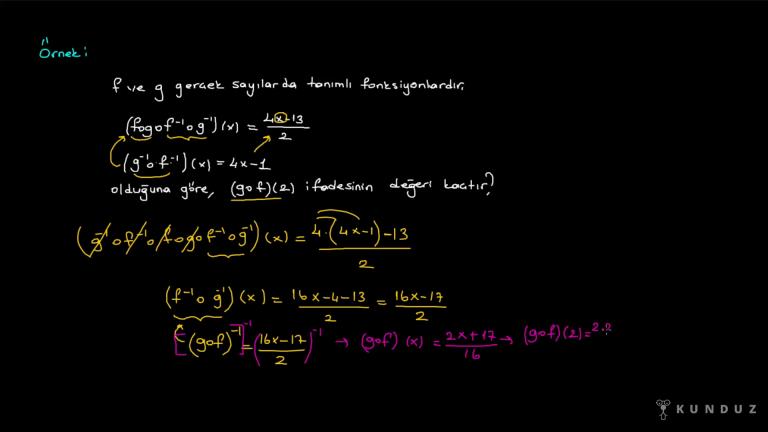 Örnek:
f ve g gerçek sayılarda tanımlı fonksiyonlardır.
(fogof⁻¹og⁻¹)(x) = (4x-13)/2
(g⁻¹of⁻¹)(x) = 4x-1
olduğuna göre, (gof)(2) ifadesinin değeri kaçtır?
(g⁻¹of⁻¹ofogof⁻¹og⁻¹)(x) = (4.(4x-1)-13)/2
(f⁻¹og⁻¹)(x) = (16x-4-13)/2 = (16x-17)/2
[(gof)⁻¹]⁻¹ = ((16x-17)/2)⁻¹ → (gof)(x) = (2x+17)/16 → (gof)(2) = 2.2
KUNDUZ